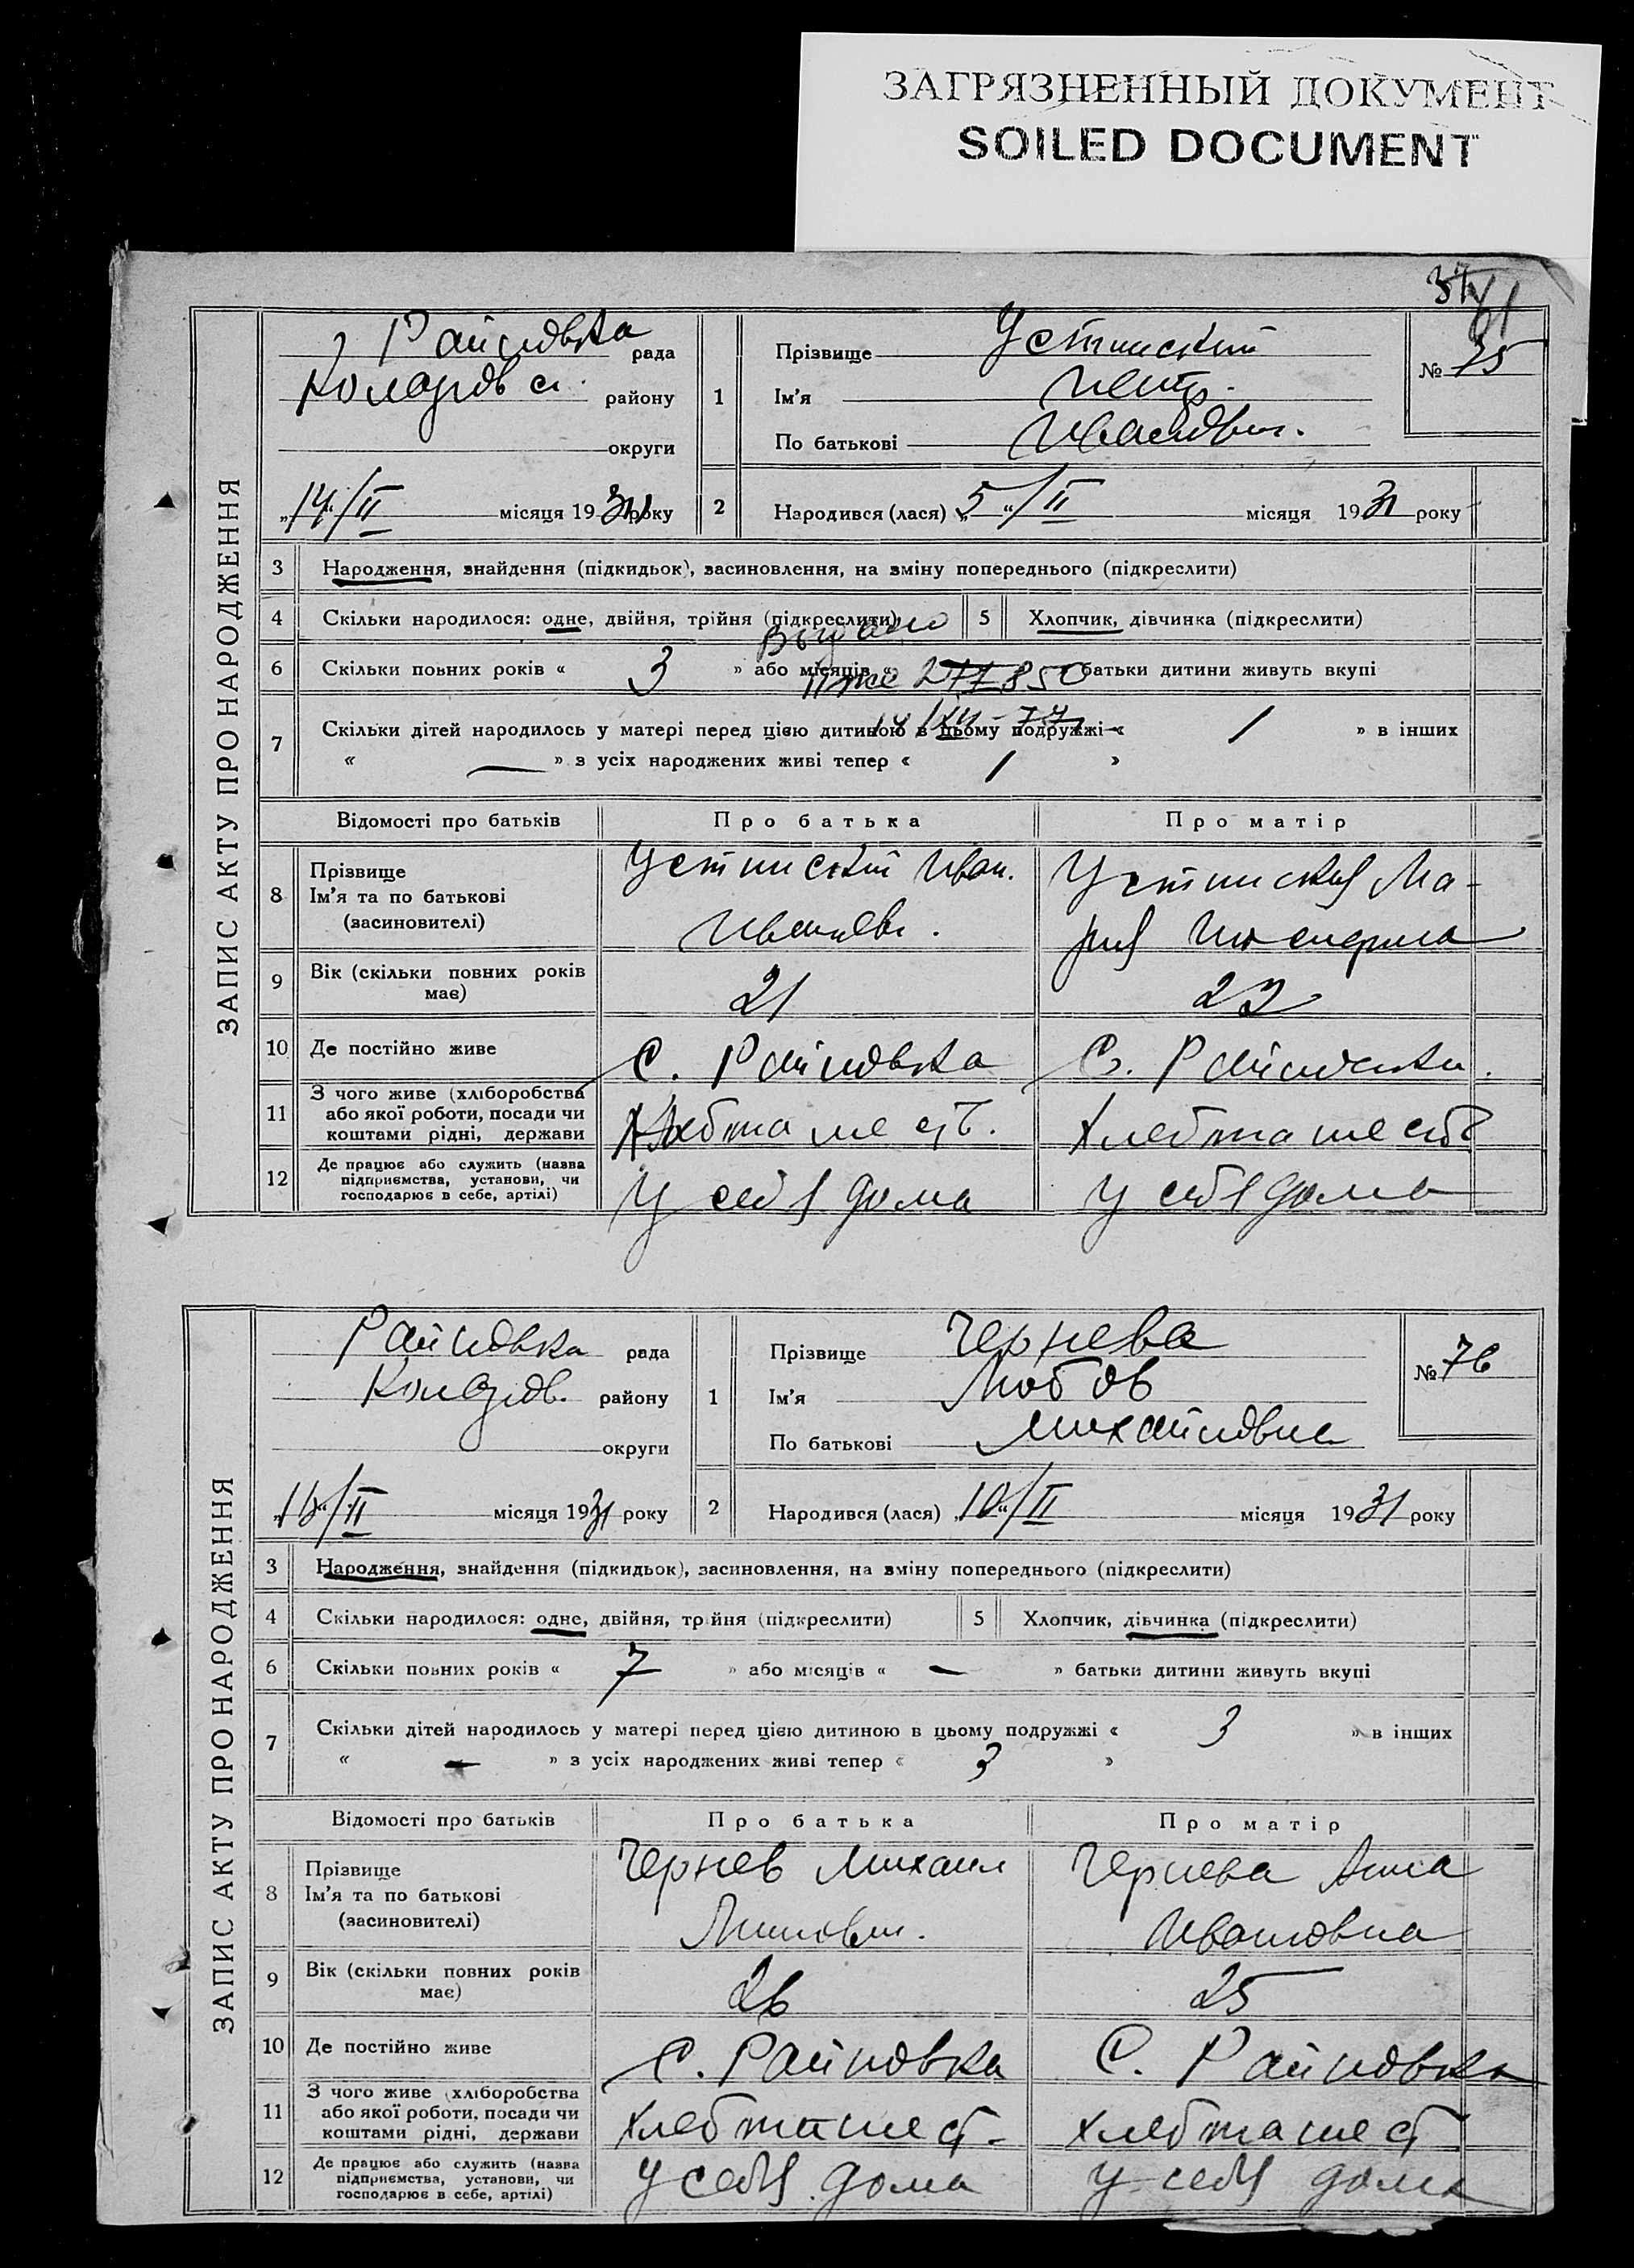 ЗАГРЯЗНЕННЫЙ ДОКУМЕНТ
SOILED DOCUMENT
ЗАПИС АКТУ ПРО НАРОДЖЕННЯ
Райновка рада
Коларов района району
округи
„14“/II місяця 1931 року
1
Прізвище Устинский
Ім'я Петр.
По батькові Иванович.
№ 75
2 Народився (лася) „5“/II місяця 1931 року
3 Народження, знайдення (підкидьок), засиновлення, на зміну попереднього (підкреслити)
4 Скільки народилося: одне, двійня, трійня (підкреслити) 5 Хлопчик, дівчинка (підкреслити)
Выдано
6 Скільки повних років « 3 » або місяців « батьки дитини живуть вкупі
7 Скільки дітей народилось у матері перед цією дитиною в цьому подружжі « 1 » в інших
« — » з усіх народжених живі тепер « 1 »
Відомості про батьків Про батька Про матір
8 Прізвище Ім'я та по батькові (засиновителі)
Устинский Иван.
Иванов.
Устинская Ма-
рия
9 Вік (скільки повних років має) 21 22
10 Де постійно живе С. Райновка С. Райновка.
11 З чого живе (хліборобства або якої роботи, посади чи коштами рідні, держави Хлебопашеств. Хлебопашеств
12 Де працює або служить (назва підприємства, установи, чи господарює в себе, артілі) У себя дома У себя дома
ЗАПИС АКТУ ПРО НАРОДЖЕННЯ
Райновка рада
Коларов. району
округи
„16“/II місяця 1931 року
1
Прізвище Чернева
Ім'я Любовь
По батькові Михайловна
№ 76
2 Народився (лася) „10“/II місяця 1931 року
3 Народження, знайдення (підкидьок), засиновлення, на зміну попереднього (підкреслити)
4 Скільки народилося: одне, двійня, трійня (підкреслити) 5 Хлопчик, дівчинка (підкреслити)
6 Скільки повних років « 7 » або місяців « — » батьки дитини живуть вкупі
7 Скільки дітей народилось у матері перед цією дитиною в цьому подружжі « 3 » в інших
« — » з усіх народжених живі тепер « 3 »
Відомості про батьків Про батька Про матір
8 Прізвище Ім'я та по батькові (засиновителі)
Чернев Михаил
Чернева Анна
Ивановна
9 Вік (скільки повних років має) 26 25
10 Де постійно живе С. Райновка С. Райновка
11 З чого живе (хліборобства або якої роботи, посади чи коштами рідні, держави Хлебопашест- Хлебопашест
12 Де працює або служить (назва підприємства, установи, чи господарює в себе, артілі) У себя дома У себя дома